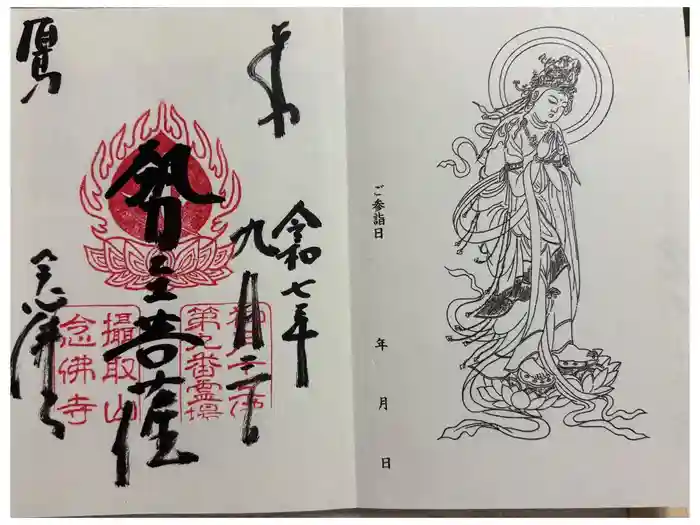 ご参詣日
年
月
日
奉
令和七年
九月二日
勢至菩薩
第九番霊場
攝取山
念佛寺
念佛寺